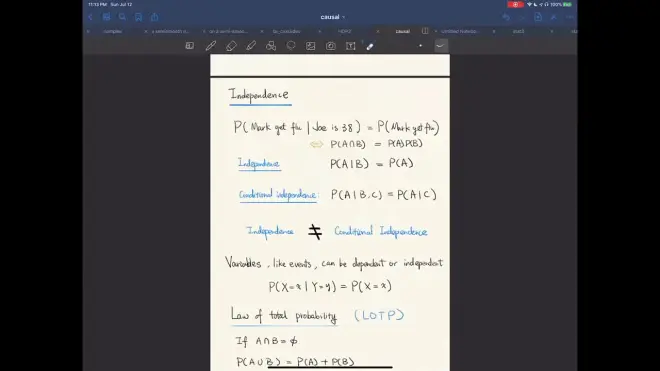 11:13 PM Sun Jul 12
100%
causal
complex
causal
Independence
P( Mark get flu | Joe is 38 ) = P( Mark get flu )
⇔ P(A∩B) = P(A)P(B)
Independence P(A|B) = P(A)
Conditional independence: P(A|B,C) = P(A|C)
Independence ≠ Conditional Independence
Variables, like events, can be dependent or independent
P(X=x | Y=y) = P(X=x)
Law of total probability (LOTP)
If A∩B = ∅
P(A∪B) = P(A) + P(B)